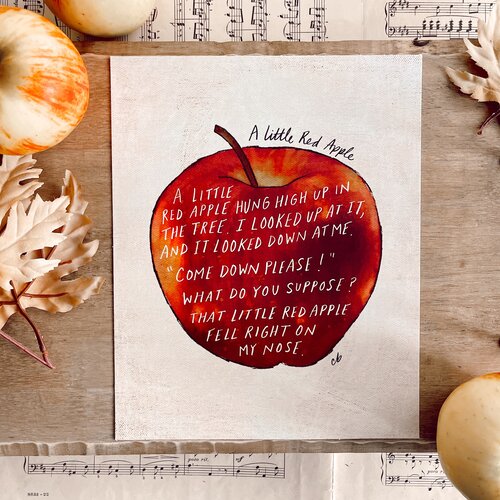 A Little Red Apple
A LITTLE
RED APPLE HUNG HIGH UP IN
THE TREE. I LOOKED UP AT IT,
AND IT LOOKED DOWN AT ME.
"COME DOWN PLEASE!"
WHAT DO YOU SUPPOSE?
THAT LITTLE RED APPLE
FELL RIGHT ON
MY NOSE.
cb